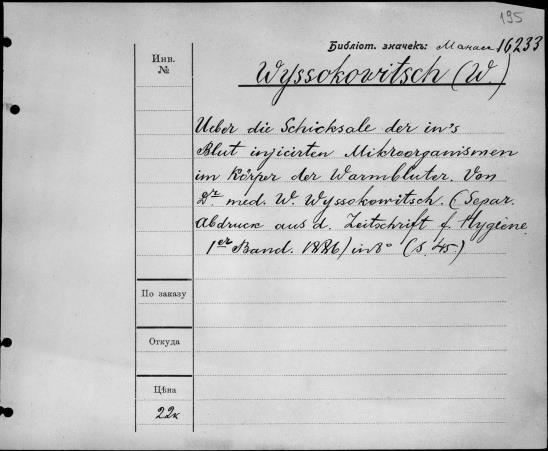 195
Библіот. значекъ: Манас 16233
Инв.
№
Wyssokowitsch (W.)
Ueber die Schicksale der in's
Blut injicirten Mikroorganismen
im Körper der Warmblüter. Von
Dr. med. W. Wyssokowitsch. (Separ.
Abdruck aus d. Zeitschrift f. Hygiene.
1er Band. 1886) in 8° (S. 45)
По заказу
Откуда
Цѣна
22к